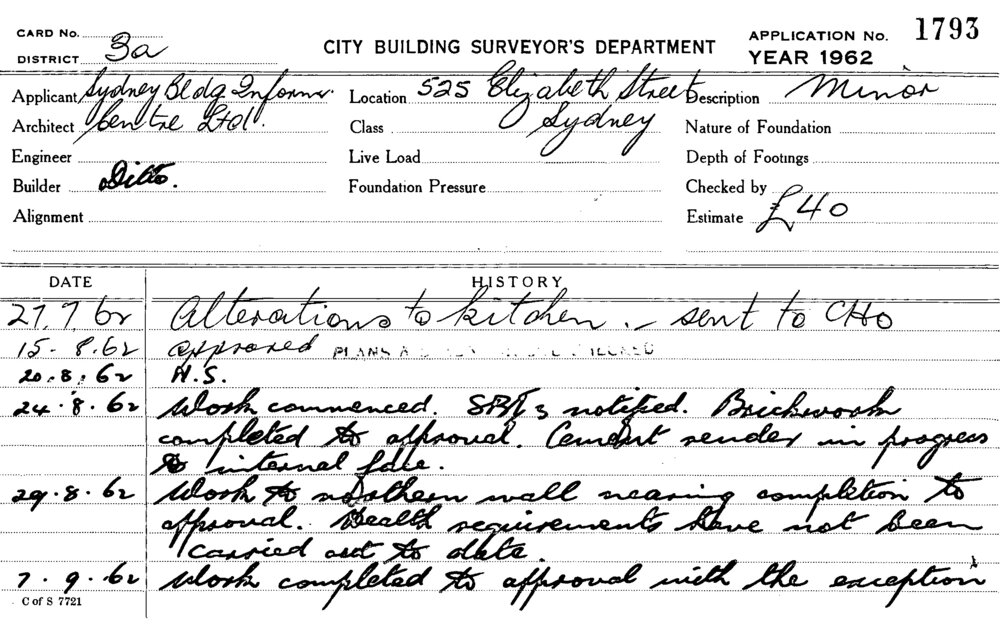 CARD No.
DISTRICT 3a
CITY BUILDING SURVEYOR'S DEPARTMENT
APPLICATION No. 1793
YEAR 1962
Applicant Sydney Bldg Inform.
Location 525 Elizabeth Street
Description Minor
Architect Centre Ltd.
Class Sydney
Nature of Foundation
Engineer
Live Load
Depth of Footings
Builder Ditto.
Foundation Pressure
Checked by
Alignment
Estimate £40
DATE HISTORY
27.7.62 Alterations to kitchen. – sent to CHO
15.8.62 approved PLANS
20.8.62 N.S.
24.8.62 Work commenced. notified. Brickwork
completed to approval. Cement render in progress
to internal face.
29.8.62 Work to northern wall nearing completion to
approval. Health requirements have not been
carried out to date.
7.9.62 Work completed to approval with the exception
C of S 7721